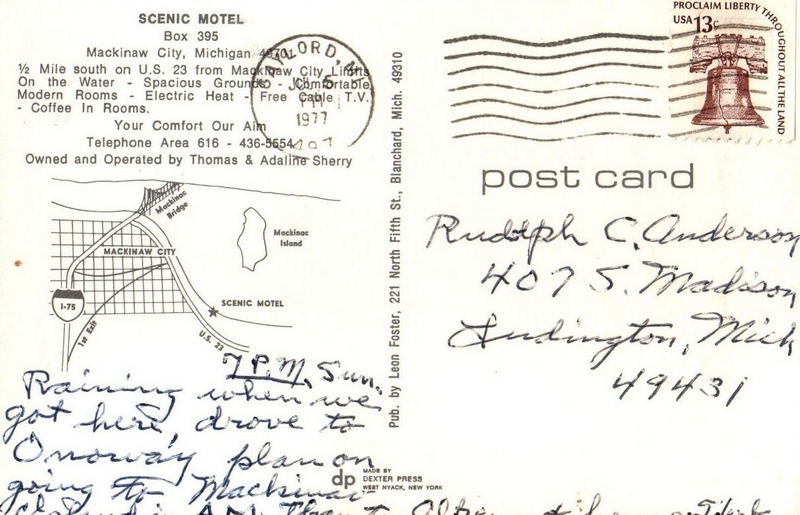 SCENIC MOTEL
Box 395
Mackinaw City, Michigan 49701
½ Mile south on U.S. 23 from Mackinaw City Limits
On the Water - Spacious Grounds - Comfortable
Modern Rooms - Electric Heat - Free Cable T.V.
- Coffee In Rooms.
Your Comfort Our Aim
Telephone Area 616 - 436-5554
Owned and Operated by Thomas & Adaline Sherry
GAYLORD, MI
PM
1977
497
Mackinac
Bridge
Mackinac
Island
MACKINAW CITY
I-75
SCENIC MOTEL
1st Exit
U.S. 23
7 P.M. Sun.
Raining when we
got here, drove to
Onoway plan on
going to Mackinac
Island in A.M.
Pub. by Leon Foster, 221 North Fifth St., Blanchard, Mich. 49310
dp
MADE BY
DEXTER PRESS
WEST NYACK, NEW YORK
PROCLAIM LIBERTY THROUGHOUT ALL THE LAND
USA 13c
post card
Rudolph C. Anderson
407 S. Madison
Ludington, Mich
49431